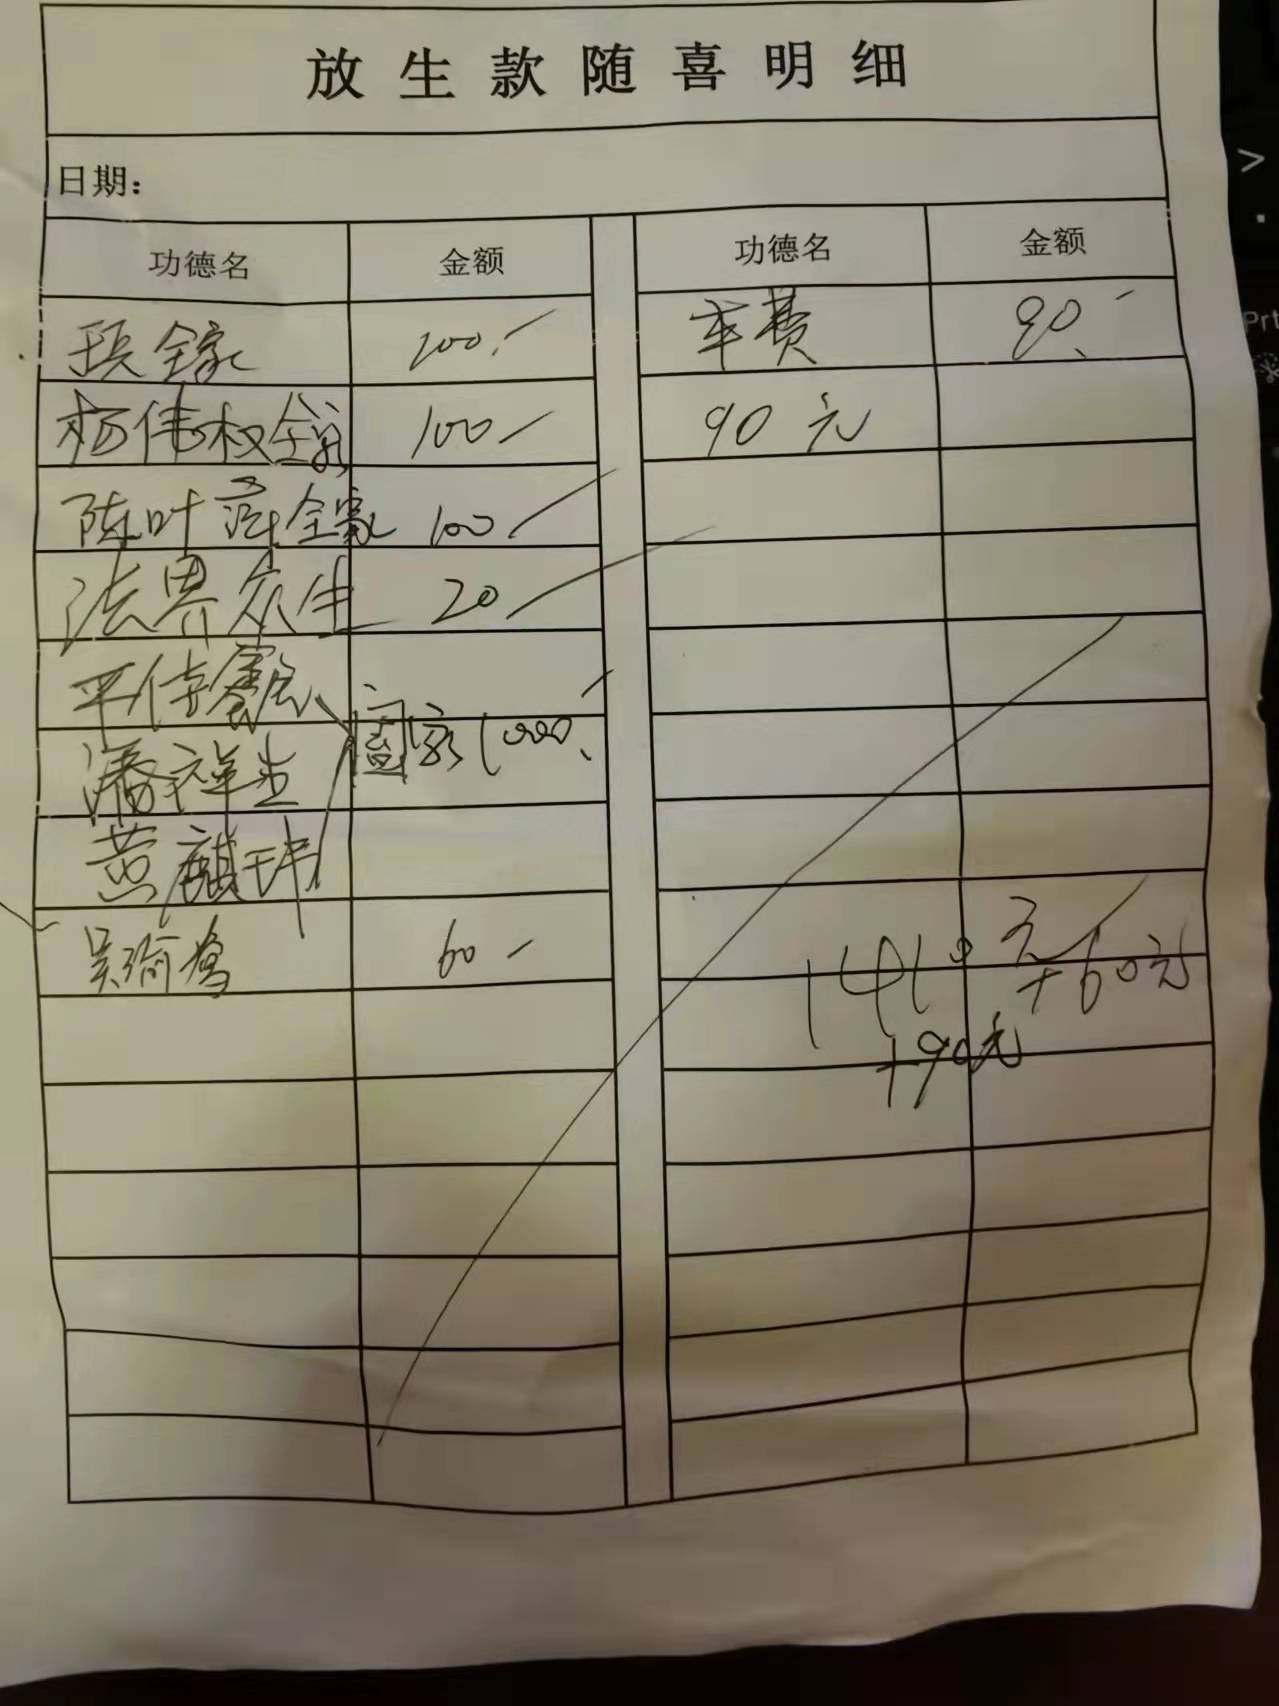 放生款随喜明细
日期：
功德名 金额 功德名 金额
全家 100 车费 90
杨伟权全家 100 90元
陈叶 全家 100
法界众生 20
平佳
潘祥生 阖家1000
黄麒玮
吴瑜 60
1410元+60元
+90元
Prt